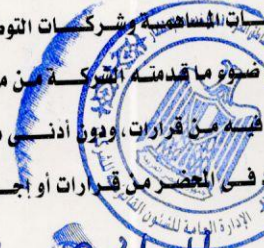 ـات المساهمة وشركـــات التوص
ضوء ما قدمته الشركــة من م
فيه من قرارات، ودون أدنـــى م
فـــى المحضر من قرارات أو إجـ
الإدارة العامة للشئون القانونية